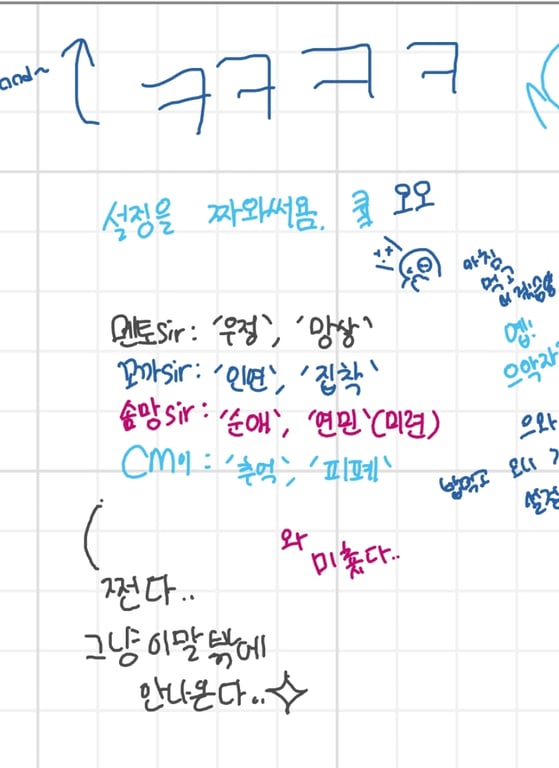 and~
ㅋㅋㅋㅋ
설정을 짜와써욤. 쿌 오오
아침
먹고
멘토sir: '우정', '망상'
꼬까sir: '인연', '집착'
솜망sir: '순애', '연민'(미련)
CM이: '추억', '피폐'
옙!
으악자
으와
밥먹고 오니
설정
와
미쳤다..
쩐다..
그냥 이말 밖에
안나온다..